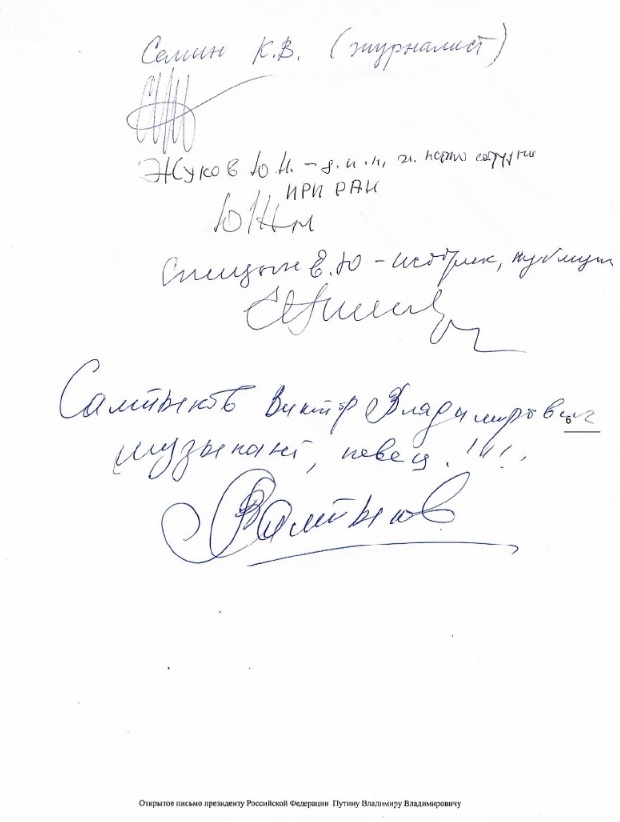 Семин К.В. (журналист)
Жуков Ю.Н. – д.и.н, гл. научн сотрудн
ИРИ РАН
Спицын Е.Ю – историк, публицист
Салтыков Виктор Владимирович
музыкант, певец.!!!!
Салтыков
Открытое письмо президенту Российской Федерации Путину Владимиру Владимировичу